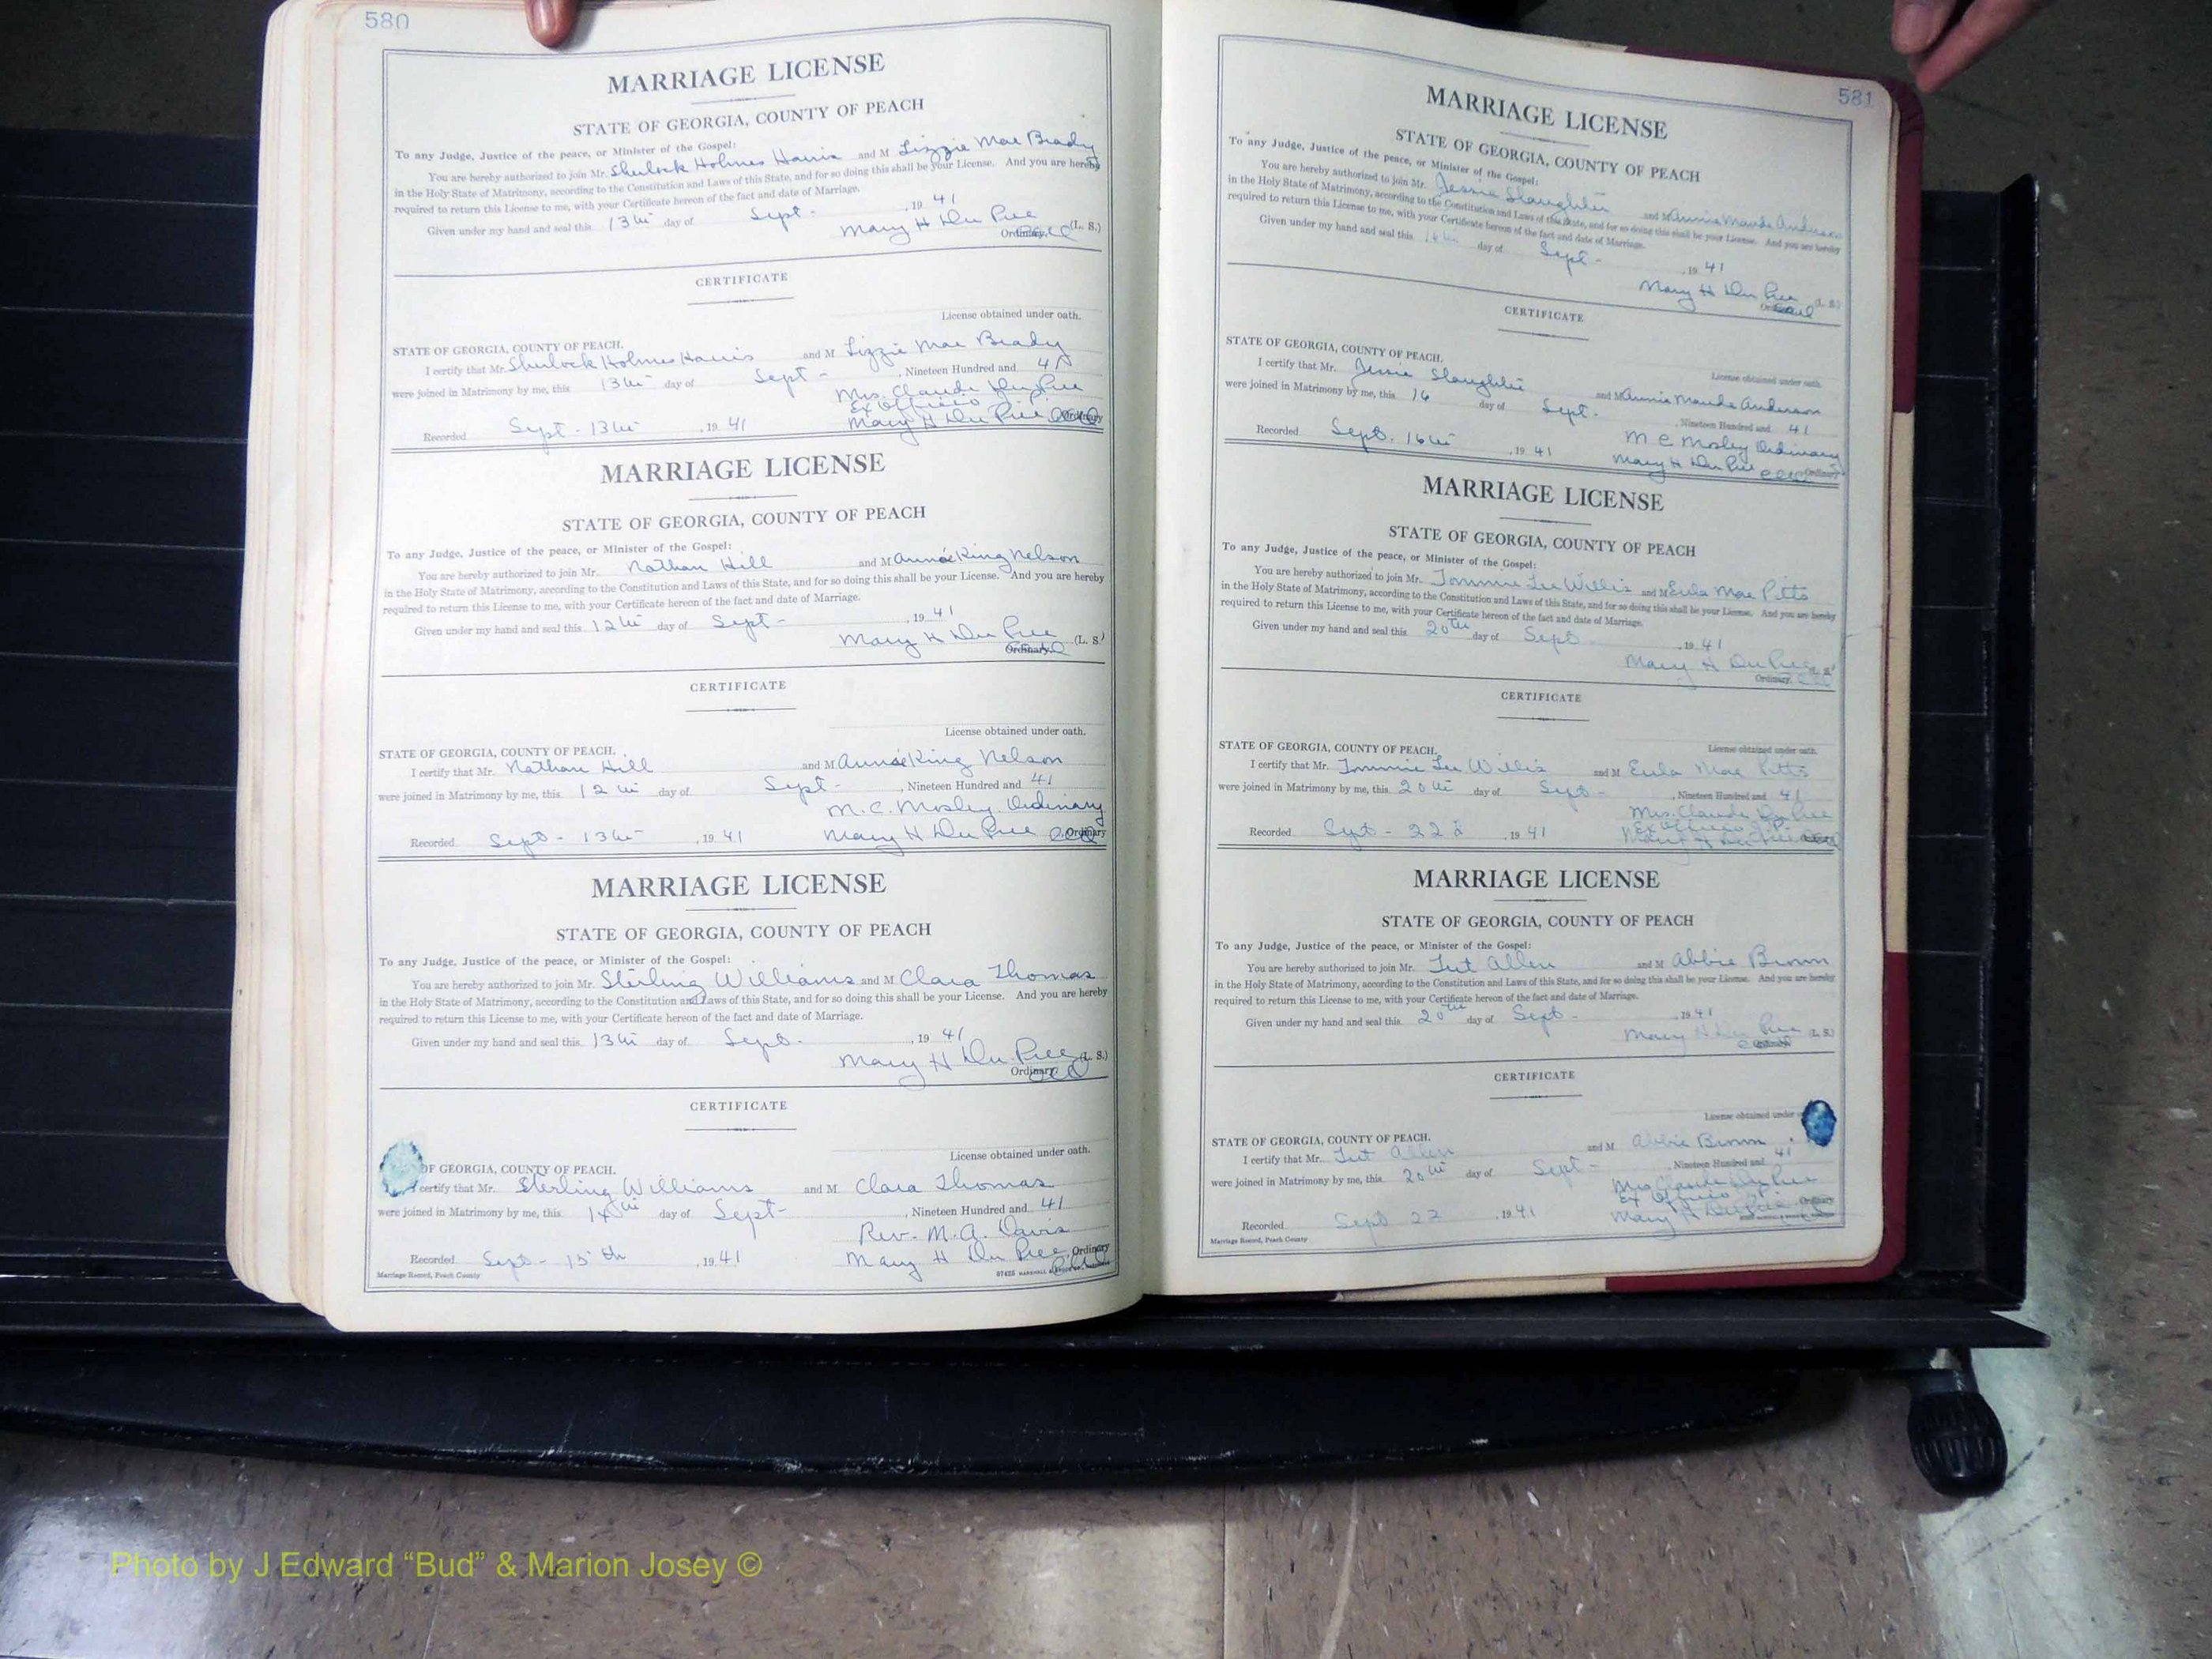 580
MARRIAGE LICENSE
STATE OF GEORGIA, COUNTY OF PEACH
To any Judge, Justice of the peace, or Minister of the Gospel:
You are hereby authorized to join Mr. Shulock Holmes Harris and M Lizzie Mae Brady
in the Holy State of Matrimony, according to the Constitution and Laws of this State, and for so doing this shall be your License. And you are hereby
required to return this License to me, with your Certificate hereon of the fact and date of Marriage.
Given under my hand and seal this 13th day of Sept. , 19 41
Mary H Du Pree (L. S.)
Ordinary.
CERTIFICATE
License obtained under oath.
STATE OF GEORGIA, COUNTY OF PEACH.
I certify that Mr. Shulock Holmes Harris and M Lizzie Mae Brady
were joined in Matrimony by me, this 13th day of Sept - , Nineteen Hundred and 41
Mrs. Claude Du Pree
Ex Officio
Recorded Sept. 13th , 19 41 Mary H Du Pree Ordinary
MARRIAGE LICENSE
STATE OF GEORGIA, COUNTY OF PEACH
To any Judge, Justice of the peace, or Minister of the Gospel:
You are hereby authorized to join Mr. Nathan Hill and M Annie King Nelson
in the Holy State of Matrimony, according to the Constitution and Laws of this State, and for so doing this shall be your License. And you are hereby
required to return this License to me, with your Certificate hereon of the fact and date of Marriage.
Given under my hand and seal this 12th day of Sept - , 19 41
Mary H Du Pree (L. S.)
Ordinary.
CERTIFICATE
License obtained under oath.
STATE OF GEORGIA, COUNTY OF PEACH.
I certify that Mr. Nathan Hill and M Annie King Nelson
were joined in Matrimony by me, this 12th day of Sept - , Nineteen Hundred and 41
M. C. Mosley Ordinary
Recorded Sept - 13th , 19 41 Mary H Du Pree Ordinary
MARRIAGE LICENSE
STATE OF GEORGIA, COUNTY OF PEACH
To any Judge, Justice of the peace, or Minister of the Gospel:
You are hereby authorized to join Mr. Sterling Williams and M Clara Thomas
in the Holy State of Matrimony, according to the Constitution and Laws of this State, and for so doing this shall be your License. And you are hereby
required to return this License to me, with your Certificate hereon of the fact and date of Marriage.
Given under my hand and seal this 13th day of Sept. , 19 41
Mary H Du Pree (L. S.)
Ordinary.
CERTIFICATE
License obtained under oath.
OF GEORGIA, COUNTY OF PEACH.
certify that Mr. Sterling Williams and M Clara Thomas
were joined in Matrimony by me, this 14th day of Sept- , Nineteen Hundred and 41
Rev. M. A. Davis
Recorded Sept - 15th , 19 41 Mary H Du Pree Ordinary
Marriage Record, Peach County
581
MARRIAGE LICENSE
STATE OF GEORGIA, COUNTY OF PEACH
To any Judge, Justice of the peace, or Minister of the Gospel:
You are hereby authorized to join Mr. Jessie Slaughter and M Annie Maude Anderson
in the Holy State of Matrimony, according to the Constitution and Laws of this State, and for so doing this shall be your License. And you are hereby
required to return this License to me, with your Certificate hereon of the fact and date of Marriage.
Given under my hand and seal this 16th day of Sept - , 19 41
Mary H Du Pree (L. S.)
CERTIFICATE
License obtained under oath.
STATE OF GEORGIA, COUNTY OF PEACH.
I certify that Mr. Jessie Slaughter and M Annie Maude Anderson
were joined in Matrimony by me, this 16 day of Sept. , Nineteen Hundred and 41
M C Mosley Ordinary
Recorded Sept. 16th , 19 41 Mary H Du Pree Ordinary
MARRIAGE LICENSE
STATE OF GEORGIA, COUNTY OF PEACH
To any Judge, Justice of the peace, or Minister of the Gospel:
You are hereby authorized to join Mr. Tommie Lee Willis and M Eula Mae Pitts
in the Holy State of Matrimony, according to the Constitution and Laws of this State, and for so doing this shall be your License. And you are hereby
required to return this License to me, with your Certificate hereon of the fact and date of Marriage.
Given under my hand and seal this 20th day of Sept , 19 41
Mary H Du Pree (L. S.)
Ordinary.
CERTIFICATE
License obtained under oath.
STATE OF GEORGIA, COUNTY OF PEACH.
I certify that Mr. Tommie Lee Willis and M Eula Mae Pitts
were joined in Matrimony by me, this 20th day of Sept - , Nineteen Hundred and 41
Mrs. Claude Du Pree
Ex Officio J.P.
Recorded Sept - 22 , 19 41 Mary H Du Pree
MARRIAGE LICENSE
STATE OF GEORGIA, COUNTY OF PEACH
To any Judge, Justice of the peace, or Minister of the Gospel:
You are hereby authorized to join Mr. Tut Allen and M Abbie Brown
in the Holy State of Matrimony, according to the Constitution and Laws of this State, and for so doing this shall be your License. And you are hereby
required to return this License to me, with your Certificate hereon of the fact and date of Marriage.
Given under my hand and seal this 20th day of Sept - , 19 41
Mary H Du Pree (L. S.)
CERTIFICATE
License obtained under
STATE OF GEORGIA, COUNTY OF PEACH.
I certify that Mr. Tut Allen and M Abbie Brown
were joined in Matrimony by me, this 20th day of Sept - , Nineteen Hundred and 41
Mrs Claude Du Pree
Ex Officio J P
Recorded Sept 22 , 19 41 Mary H Du Pree Ordinary
Marriage Record, Peach County
Photo by J Edward “Bud” & Marion Josey ©